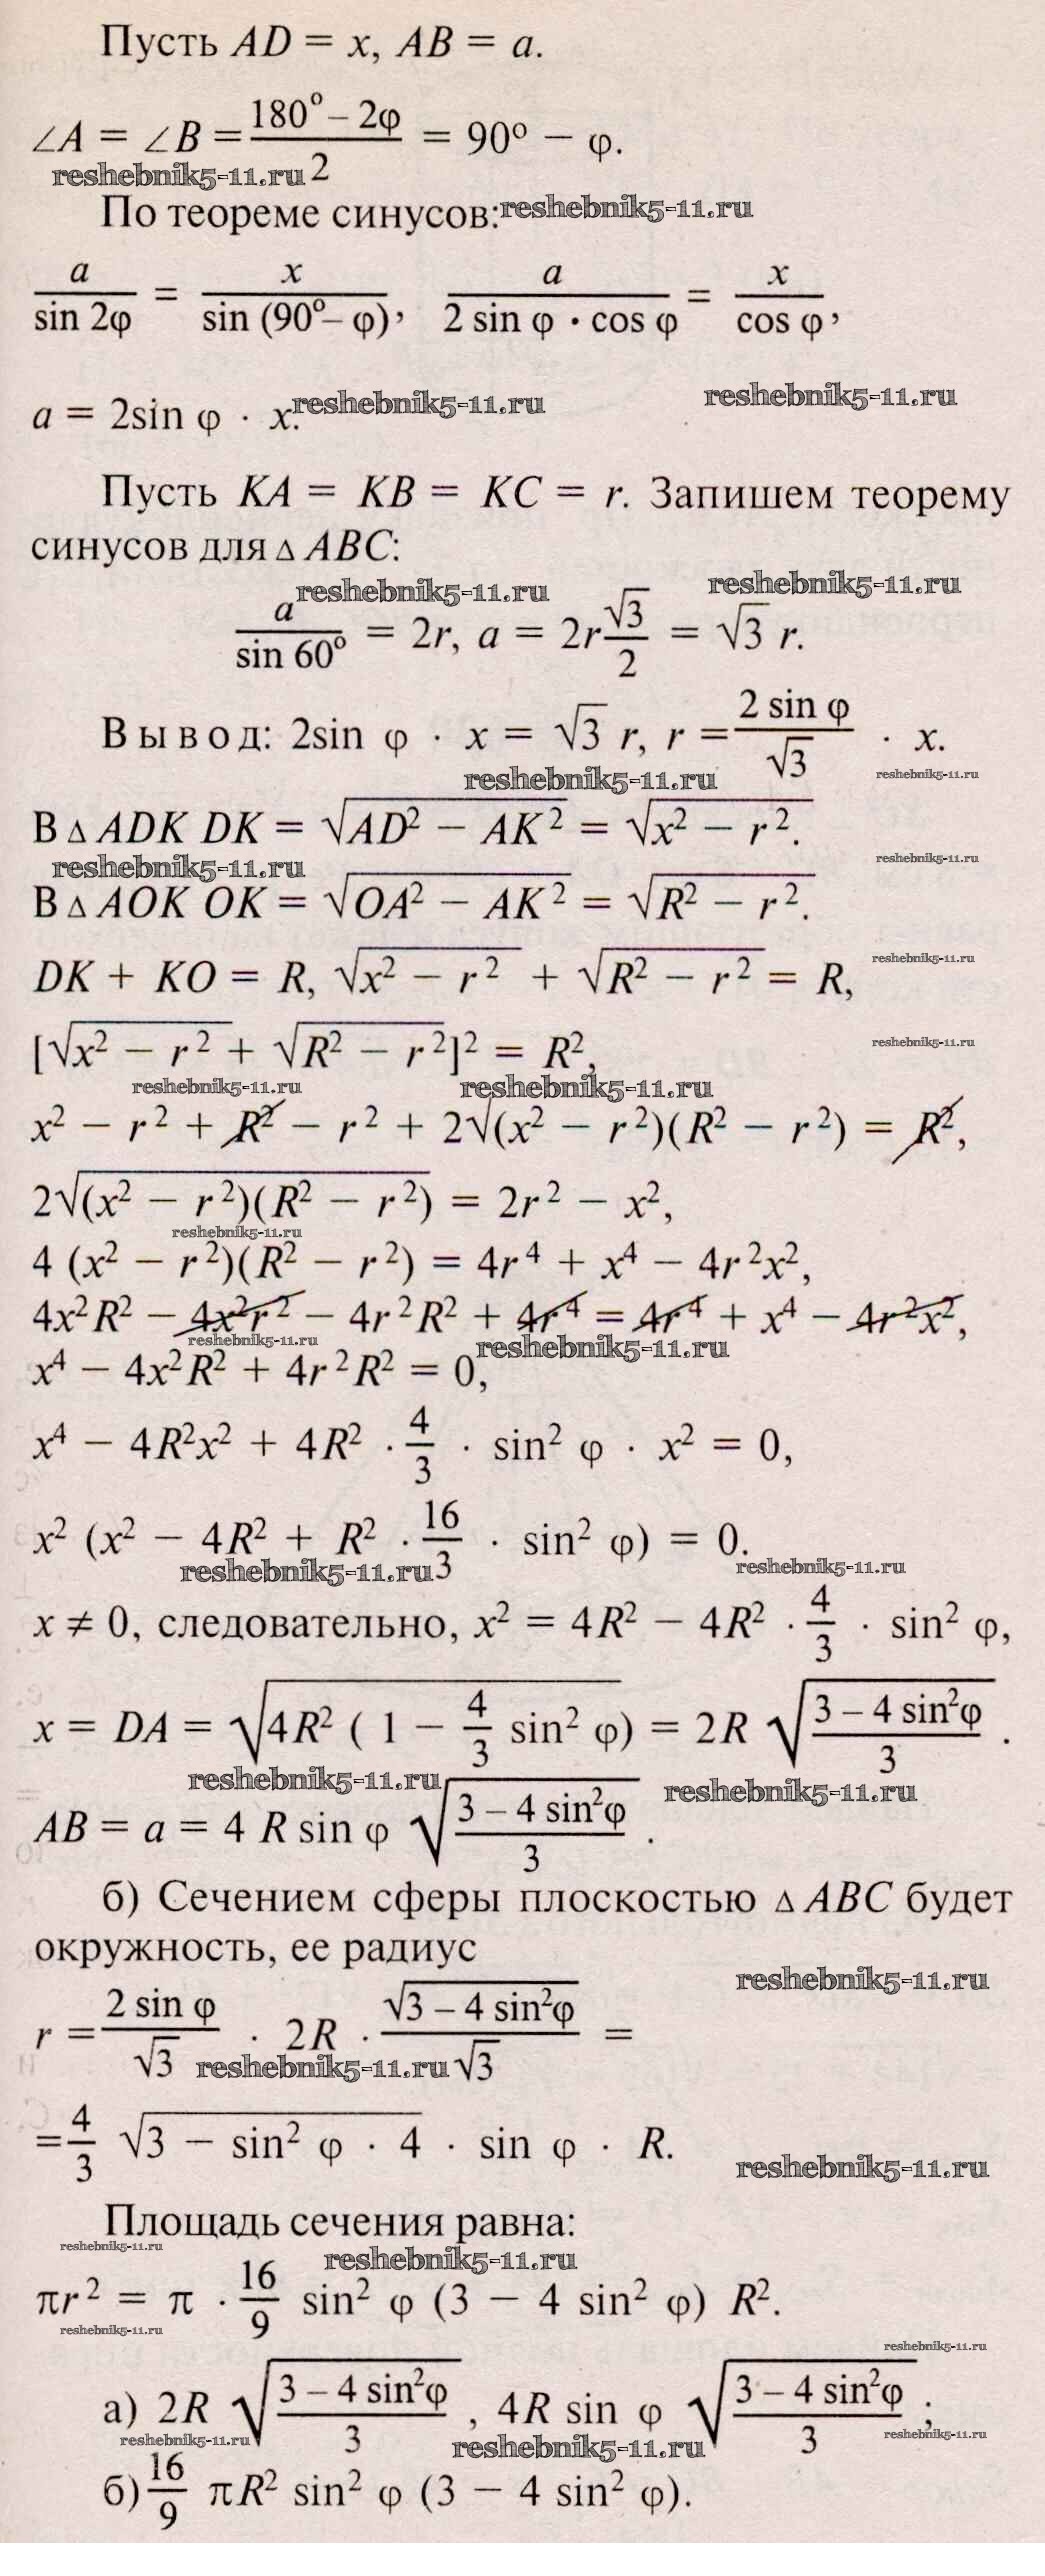 Пусть AD = x, AB = a.
∠A = ∠B = (180° – 2φ)/2 = 90° – φ.
reshebnik5-11.ru
По теореме синусов: reshebnik5-11.ru
a/sin 2φ = x/sin (90°– φ), a/(2 sin φ · cos φ) = x/cos φ,
a = 2sin φ · x. reshebnik5-11.ru reshebnik5-11.ru
Пусть KA = KB = KC = r. Запишем теорему
синусов для △ ABC:
reshebnik5-11.ru reshebnik5-11.ru
a/sin 60° = 2r, a = 2r √3/2 = √3 r.
Вывод: 2sin φ · x = √3 r, r = (2 sin φ)/√3 · x.
reshebnik5-11.ru reshebnik5-11.ru
В △ ADK DK = √(AD² – AK²) = √(x² – r²).
reshebnik5-11.ru reshebnik5-11.ru
В △ AOK OK = √(OA² – AK²) = √(R² – r²).
DK + KO = R, √(x² – r²) + √(R² – r²) = R,
reshebnik5-11.ru
[√(x² – r²) + √(R² – r²)]² = R²,
reshebnik5-11.ru
reshebnik5-11.ru reshebnik5-11.ru
x² – r² + R² – r² + 2√(x² – r²)(R² – r²) = R²,
2√(x² – r²)(R² – r²) = 2r² – x²,
reshebnik5-11.ru
4 (x² – r²)(R² – r²) = 4r⁴ + x⁴ – 4r²x²,
4x²R² – 4x²r² – 4r²R² + 4r⁴ = 4r⁴ + x⁴ – 4r²x²,
reshebnik5-11.ru reshebnik5-11.ru
x⁴ – 4x²R² + 4r²R² = 0,
x⁴ – 4R²x² + 4R² · 4/3 · sin² φ · x² = 0,
x² (x² – 4R² + R² · 16/3 · sin² φ) = 0.
reshebnik5-11.ru reshebnik5-11.ru
x ≠ 0, следовательно, x² = 4R² – 4R² · 4/3 · sin² φ,
x = DA = √(4R² ( 1 – 4/3 sin² φ)) = 2R √((3 – 4 sin²φ)/3) .
reshebnik5-11.ru reshebnik5-11.ru
AB = a = 4 R sin φ √((3 – 4 sin²φ)/3) .
б) Сечением сферы плоскостью △ ABC будет
окружность, ее радиус
reshebnik5-11.ru
r = (2 sin φ)/√3 · 2R · √(3 – 4 sin²φ)/√3 =
reshebnik5-11.ru
= 4/3 √(3 – sin² φ · 4) · sin φ · R.
reshebnik5-11.ru
Площадь сечения равна:
reshebnik5-11.ru reshebnik5-11.ru
πr² = π · 16/9 sin² φ (3 – 4 sin² φ) R².
reshebnik5-11.ru
reshebnik5-11.ru
а) 2R √((3 – 4 sin²φ)/3) , 4R sin φ √((3 – 4 sin²φ)/3) ;
reshebnik5-11.ru reshebnik5-11.ru reshebnik5-11.ru
б) 16/9 πR² sin² φ (3 – 4 sin² φ).